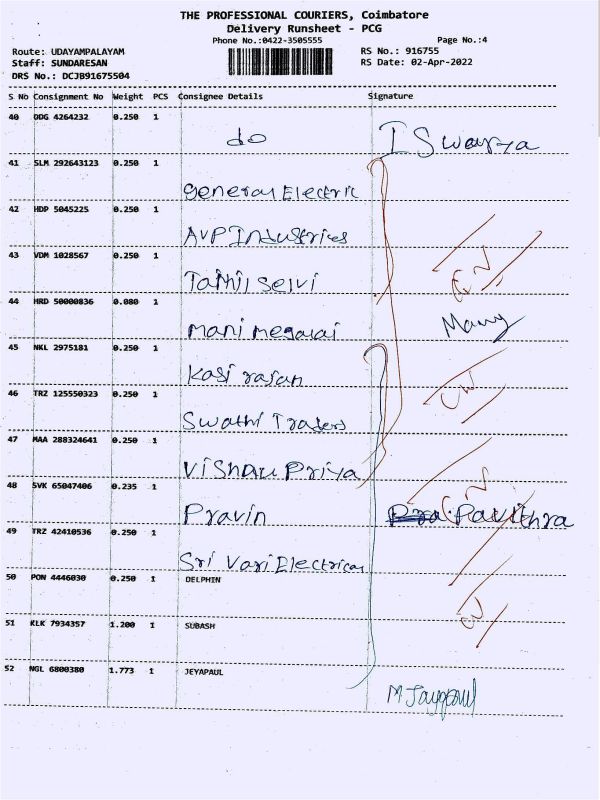 THE PROFESSIONAL COURIERS, Coimbatore
Delivery Runsheet - PCG
Phone No.:0422-3505555
Page No.:4
Route: UDAYAMPALAYAM
RS No.: 916755
Staff: SUNDARESAN
RS Date: 02-Apr-2022
DRS No.: DCJB91675504
S No Consignment No Weight PCS Consignee Details Signature
40 ODG 4264232 0.250 1
do ISwarya
41 SLM 292643123 0.250 1
General Electric
42 HDP 5045225 0.250 1
AVP Industries
43 VDM 1028567 0.250 1
Tamil Selvi
44 HRD 50000836 0.080 1
Mani megalai
45 NKL 2975181 0.250 1
Kasi rajan
46 TRZ 125550323 0.250 1
Swathi Traders
47 MAA 288324641 0.250 1
Vishnu Priya
48 SVK 65047406 0.235 1
Pravin Pavithra
49 TRZ 42410536 0.250 1
Sri Vari Electrical
50 PON 4446030 0.250 1 DELPHIN
51 KLK 7934357 1.200 1 SUBASH
52 NGL 6800380 1.773 1 JEYAPAUL